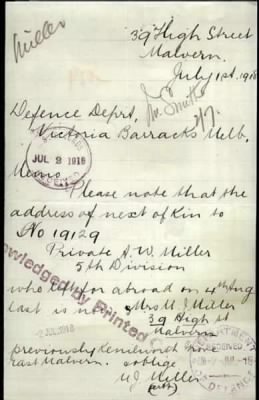 Miller
39 High Street
Malvern.
July 1st. 1918
Defence Deprt,
Victoria Barracks Melb.
Mr Smith
2/7.
JUL 2 1918
Memo
Please note that the
address of next of Kin to
No 19129
Private A. W. Miller
5th Division
who left for abroad on 4th Aug
last is now Mrs M J Miller
39 High St
Malvern
previously Kenilworth Grove
East Malvern. oblige
M J Miller
2 JUL 1918
Acknowledged by Printed
DEPARTMENT
RECEIVED
OF DEFENCE